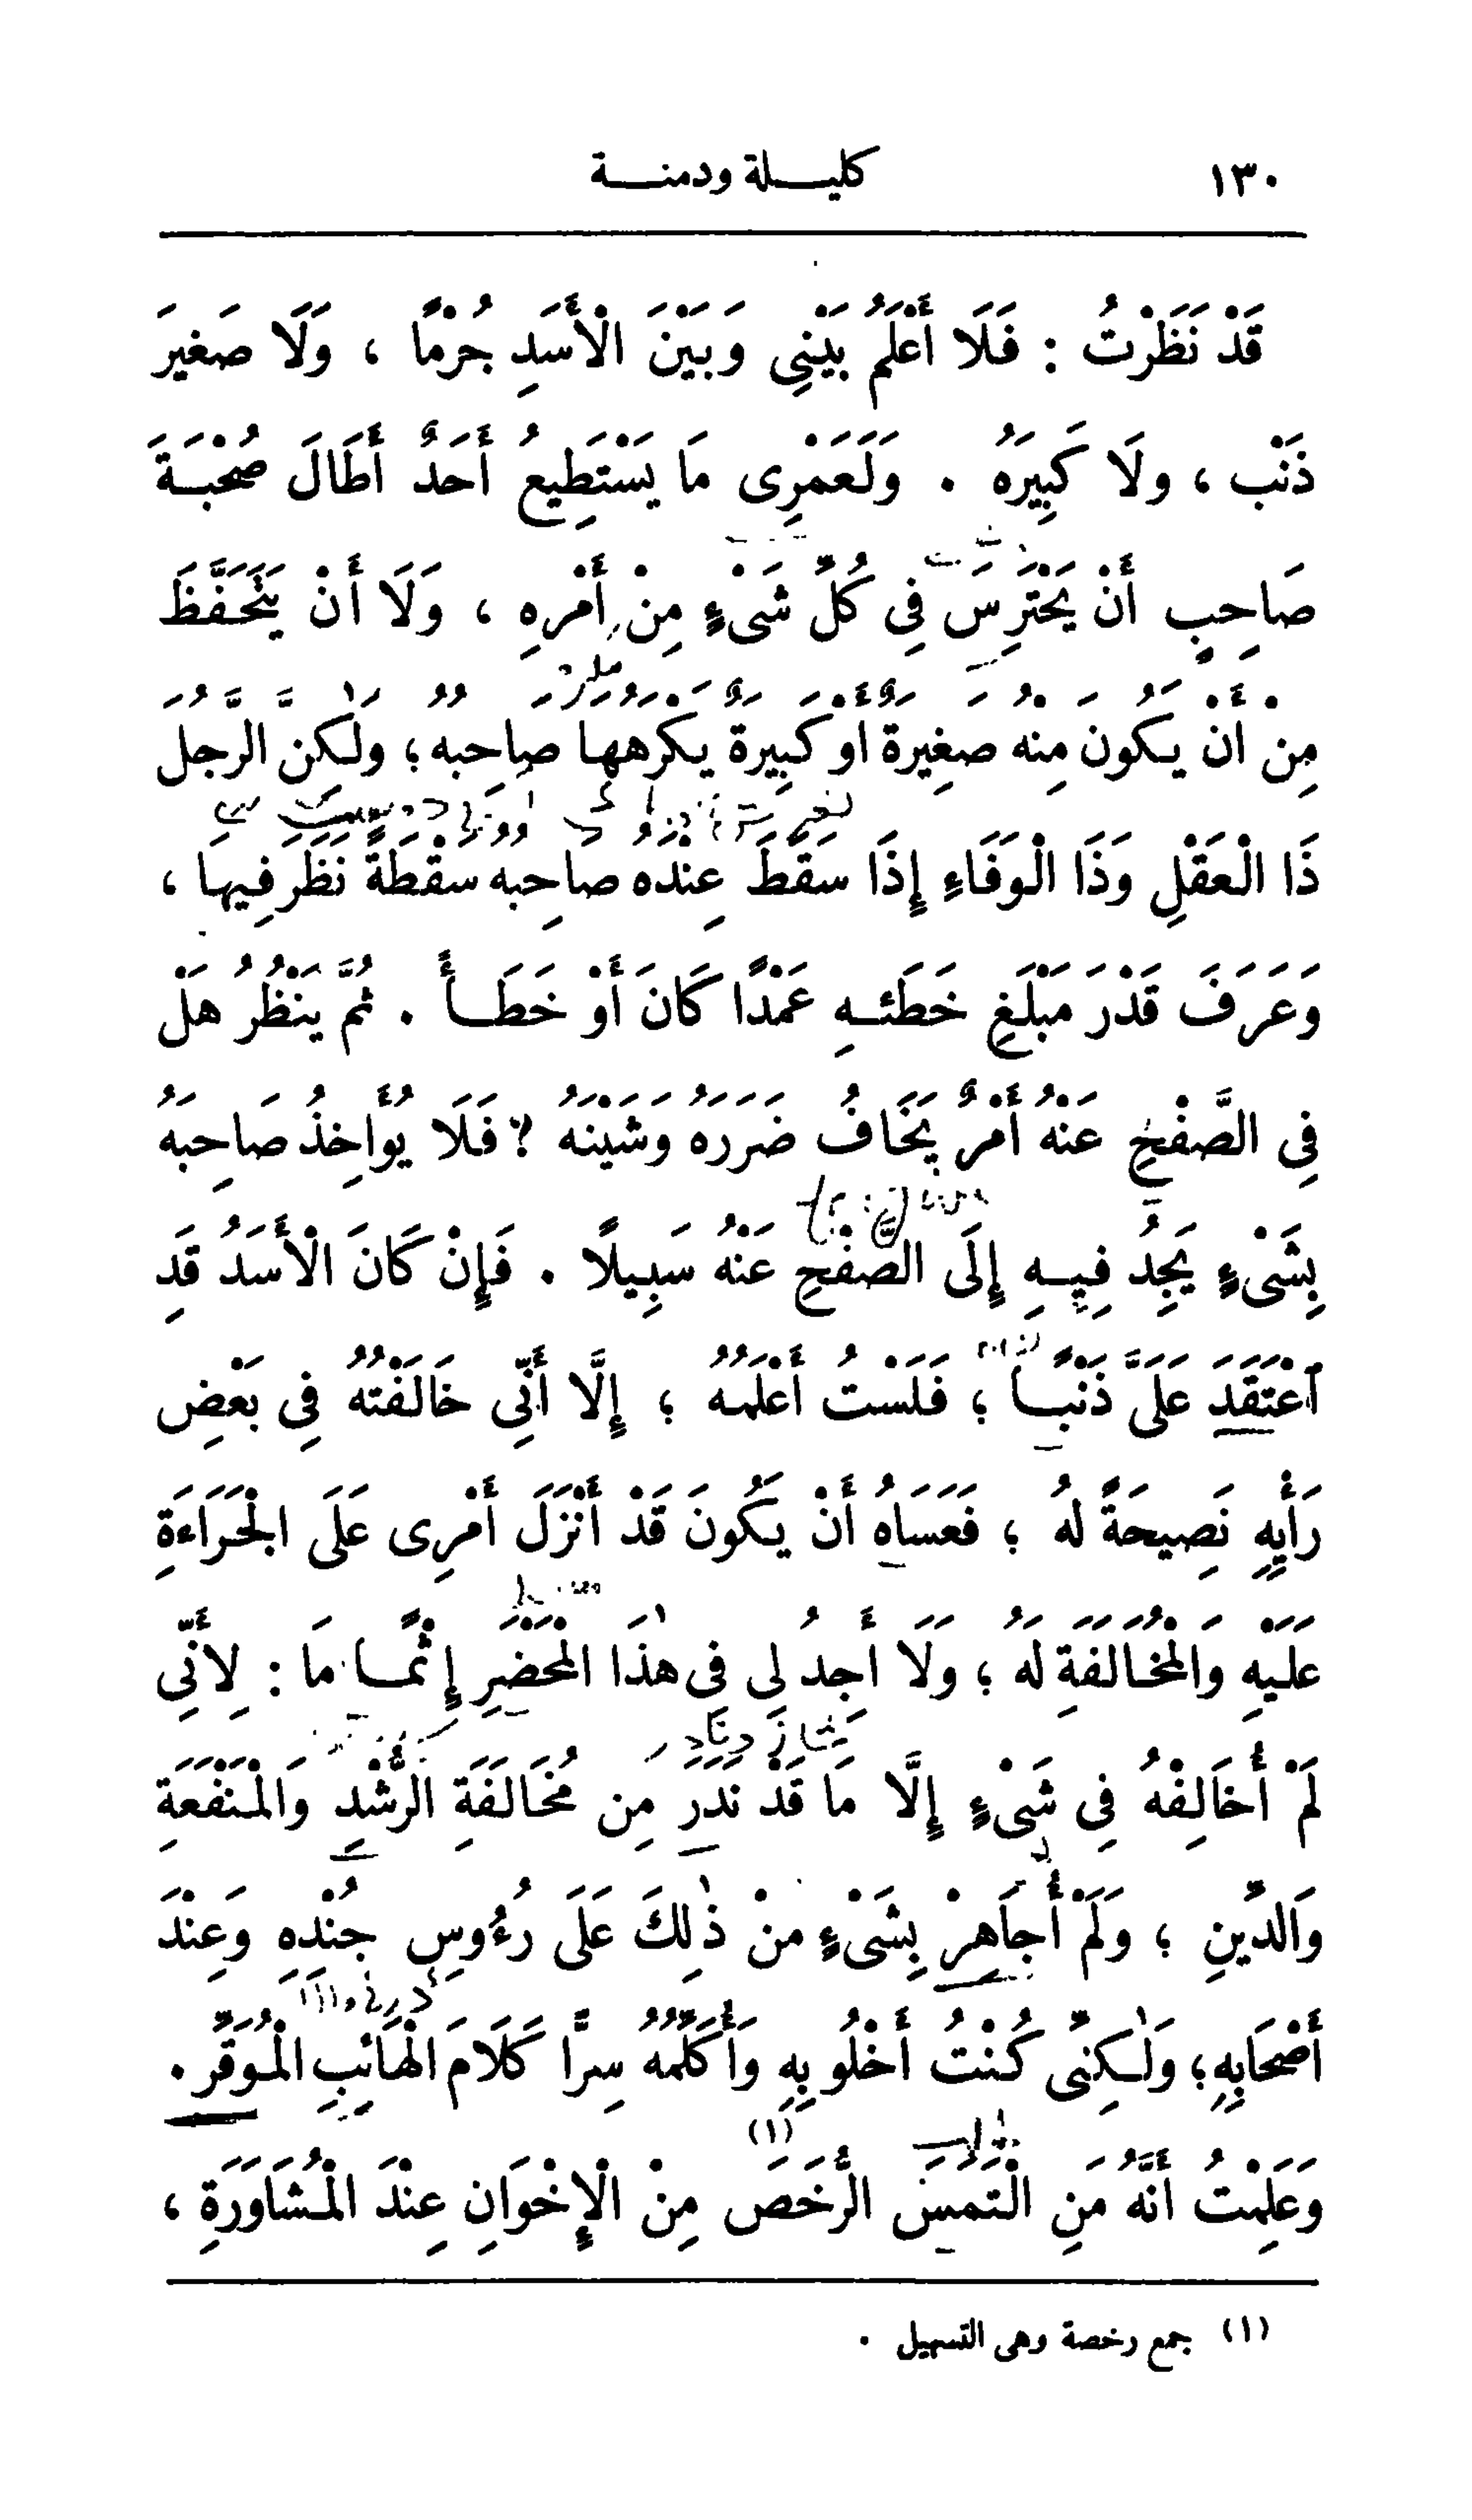 ١٣٠ كليلة ودمنة
قَدْ نَظَرْتُ : فَلَا أَعْلَمُ بَيْنِي وَبَيْنَ الْأَسَدِ جُرْمًا ، وَلَا صَغِيرَ
ذَنْب ، ولَا كَبِيرَهُ . وَلَعَمْرِى مَا يَسْتَطِيعُ أَحَدٌ أَطَالَ صُحْبَةَ
صَاحِبٍ أَنْ يَحْتَرِسَ فِي كُلِّ شَىْءٍ مِنْ أَمْرِهِ ، وَلَا أَنْ يَتَحَفَّظَ
مِنْ أَنْ يَكُونَ مِنْهُ صَغِيرَةٌ أَوْ كَبِيرَةٌ يَكْرَهُهَا صَاحِبُهُ ؛ ولَٰكِنَّ الرَّجُلَ
ذَا الْعَقْلِ وَذَا الْوَفَاءِ إِذَا سَقَطَ عِنْدَهُ صَاحِبُهُ سَقْطَةً نَظَرَ فِيهَا ،
وَعَرَفَ قَدْرَ مَبْلَغِ خَطَئِهِ عَمْدًا كَانَ أَوْ خَطَأً . ثُمَّ يَنْظُرُ هَلْ
فِي الصَّفْحِ عَنْهُ أَمْرٌ يَخَافُ ضَرَرَهُ وَشَيْنَهُ ؟ فَلَا يُؤَاخِذُ صَاحِبَهُ
بِشَىْءٍ يَجِدُ فِيهِ إِلَى الصَّفْحِ عَنْهُ سَبِيلًا . فَإِنْ كَانَ الْأَسَدُ قَدِ
اعْتَقَدَ عَلَىَّ ذَنْبًا ؛ فَلَسْتُ أَعْلَمُهُ ؛ إِلَّا أَنِّي خَالَفْتُهُ فِي بَعْضِ
رَأْيِهِ نَصِيحَةً لَهُ ؛ فَعَسَاهُ أَنْ يَكُونَ قَدْ أَنْزَلَ أَمْرِى عَلَى الْجَرَاءَةِ
عَلَيْهِ وَالْمُخَالَفَةِ لَهُ ؛ وَلَا أَجِدُ لِى فِى هٰذَا الْمَحْضَرِ إِثْمًا مَا : لِأَنِّى
لَمْ أُخَالِفْهُ فِى شَىْءٍ إِلَّا مَا قَدْ نَدَرَ مِن مُخَالَفَةِ الرُّشْدِ وَالْمَنْفَعَةِ
وَالدِّينِ ؛ وَلَمْ أُجَاهِرْ بِشَىْءٍ منْ ذٰلِكَ عَلَى رُءُوسِ جُنْدِهِ وَعِنْدَ
أَصْحَابِهِ ؛ وَلَٰكِنِّى كُنْتُ أَخْلُو بِهِ وَأُكَلِّمُهُ سِرًّا كَلَامَ الْهَائِبِ الْمُوَقِّرِ .
وَعَلِمْتُ أَنَّهُ مَنِ الْتَمَسَ الرُّخَصَ (١) مِنْ الْإِخْوَانِ عِنْدَ الْمُشَاوَرَةِ ،
(١) جمع رخصة وهى التسهيل .